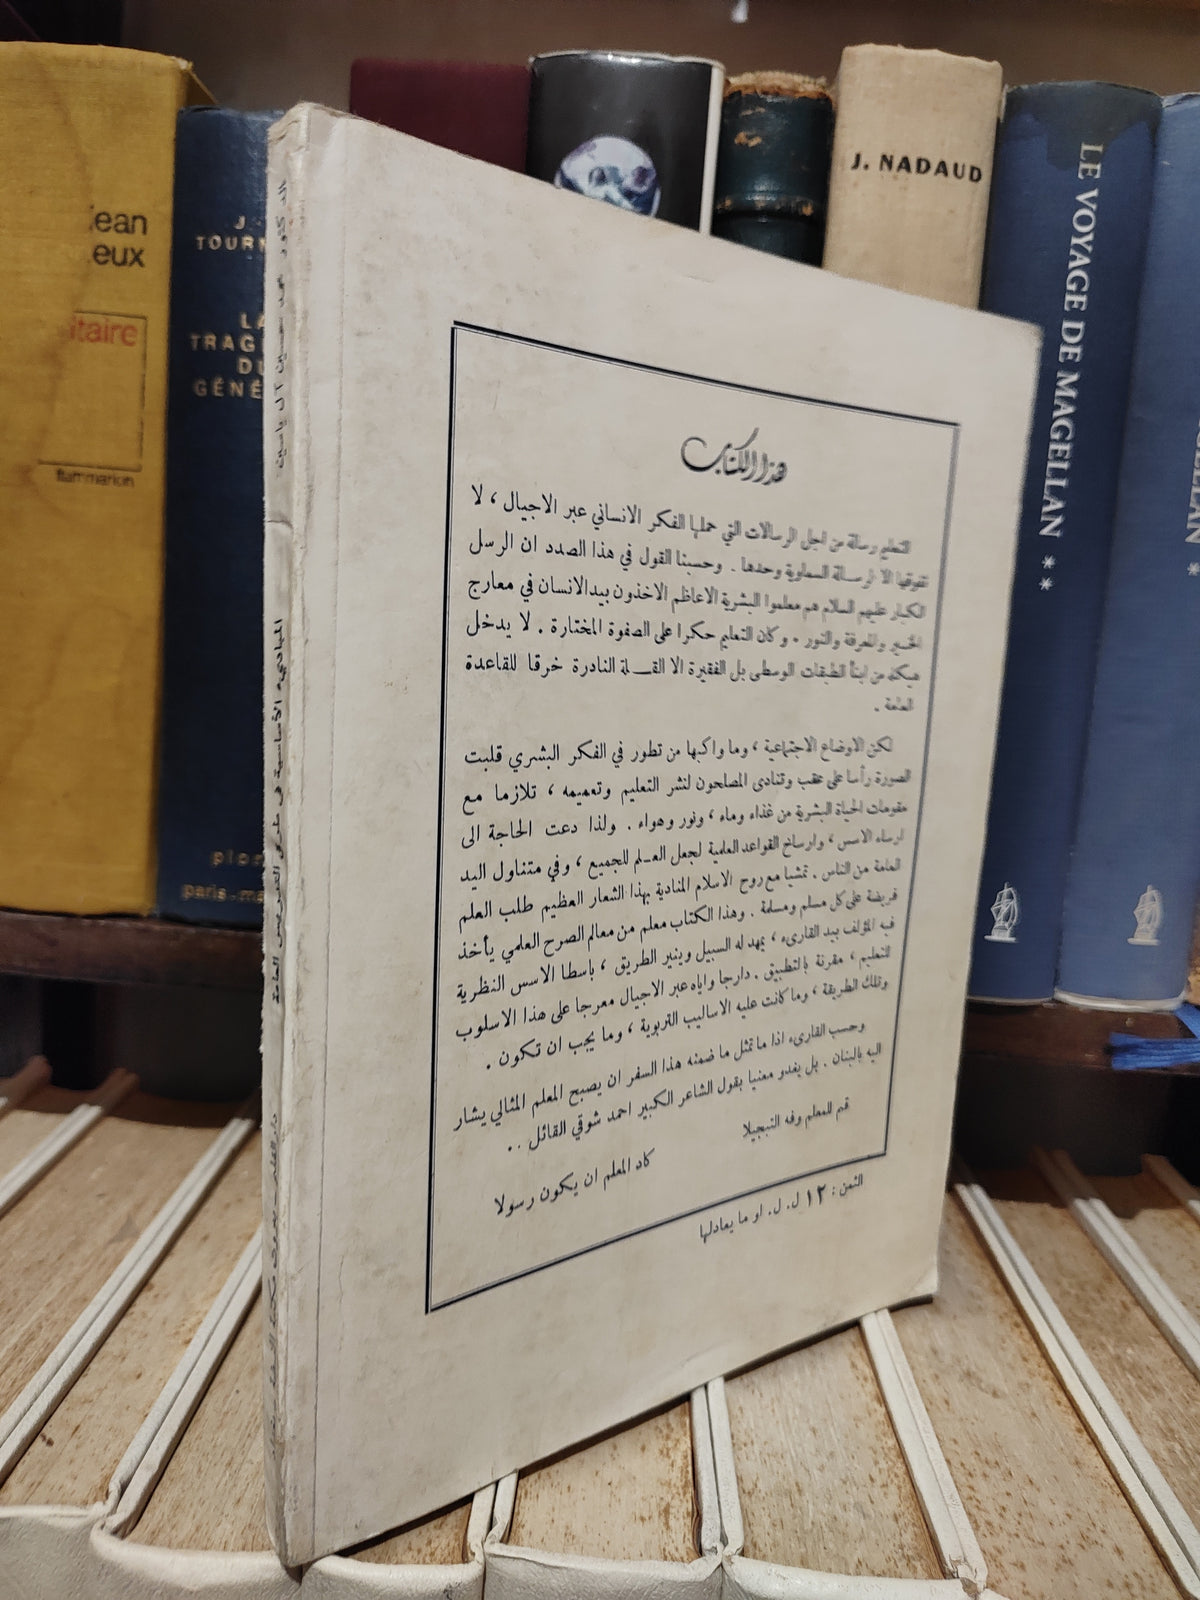 ean
eux
itaire
flammarion
J.
TOURN
LA
TRAG
DU
GÉNÉ
plon
paris-ma
J. NADAUD
LE VOYAGE DE MAGELLAN **
الدكتور محمد حسين آل ياسين
المبادىء الأساسية في طرق التدريس العامة
دار القلم - بيروت
هذا الكتاب
التعليم رسالة من اجل الرسالات التي حملها الفكر الانساني عبر الاجيال ، لا
تفوقها الا الرسالة السماوية وحدها . وحسبنا القول في هذا الصدد ان الرسل
الكبار عليهم السلام هم معلموا البشرية الاعاظم الاخذون بيد الانسان في معارج
الخير والمعرفة والنور . وكان التعليم حكرا على الصفوة المختارة . لا يدخل
هيكله من ابنأ الطبقات الوسطى بل الفقيرة الا القلة النادرة خرقا للقاعدة
العامة .
لكن الاوضاع الاجتماعية ، وما واكبها من تطور في الفكر البشري قلبت
الصورة رأسا على عقب وتنادى المصلحون لنشر التعليم وتعميمه ، تلازما مع
مقومات الحياة البشرية من غذاء وماء ، ونور وهواء . ولذا دعت الحاجة الى
ارساء الاسس ، وارساخ القواعد العلمية لجعل العلم للجميع ، وفي متناول اليد
العامة من الناس . تمشيا مع روح الاسلام المنادية بهذا الشعار العظيم طلب العلم
فريضة على كل مسلم ومسلمة . وهذا الكتاب معلم من معالم الصرح العلمي يأخذ
فيه المؤلف بيد القارىء ، يمهد له السبيل وينير الطريق ، باسطا الاسس النظرية
للتعليم ، مقرنة بالتطبيق . دارجا واياه عبر الاجيال معرجا على هذا الاسلوب
وتلك الطريقة ، وما كانت عليه الاساليب التربوية ، وما يجب ان تكون .
وحسب القارىء اذا ما تمثل ما ضمنه هذا السفر ان يصبح المعلم المثالي يشار
اليه بالبنان . بل يغدو معنيا بقول الشاعر الكبير احمد شوقي القائل ..
قم للمعلم وفه التبجيلا
كاد المعلم ان يكون رسولا
الثمن : ١٢ ل. ل. او ما يعادلها